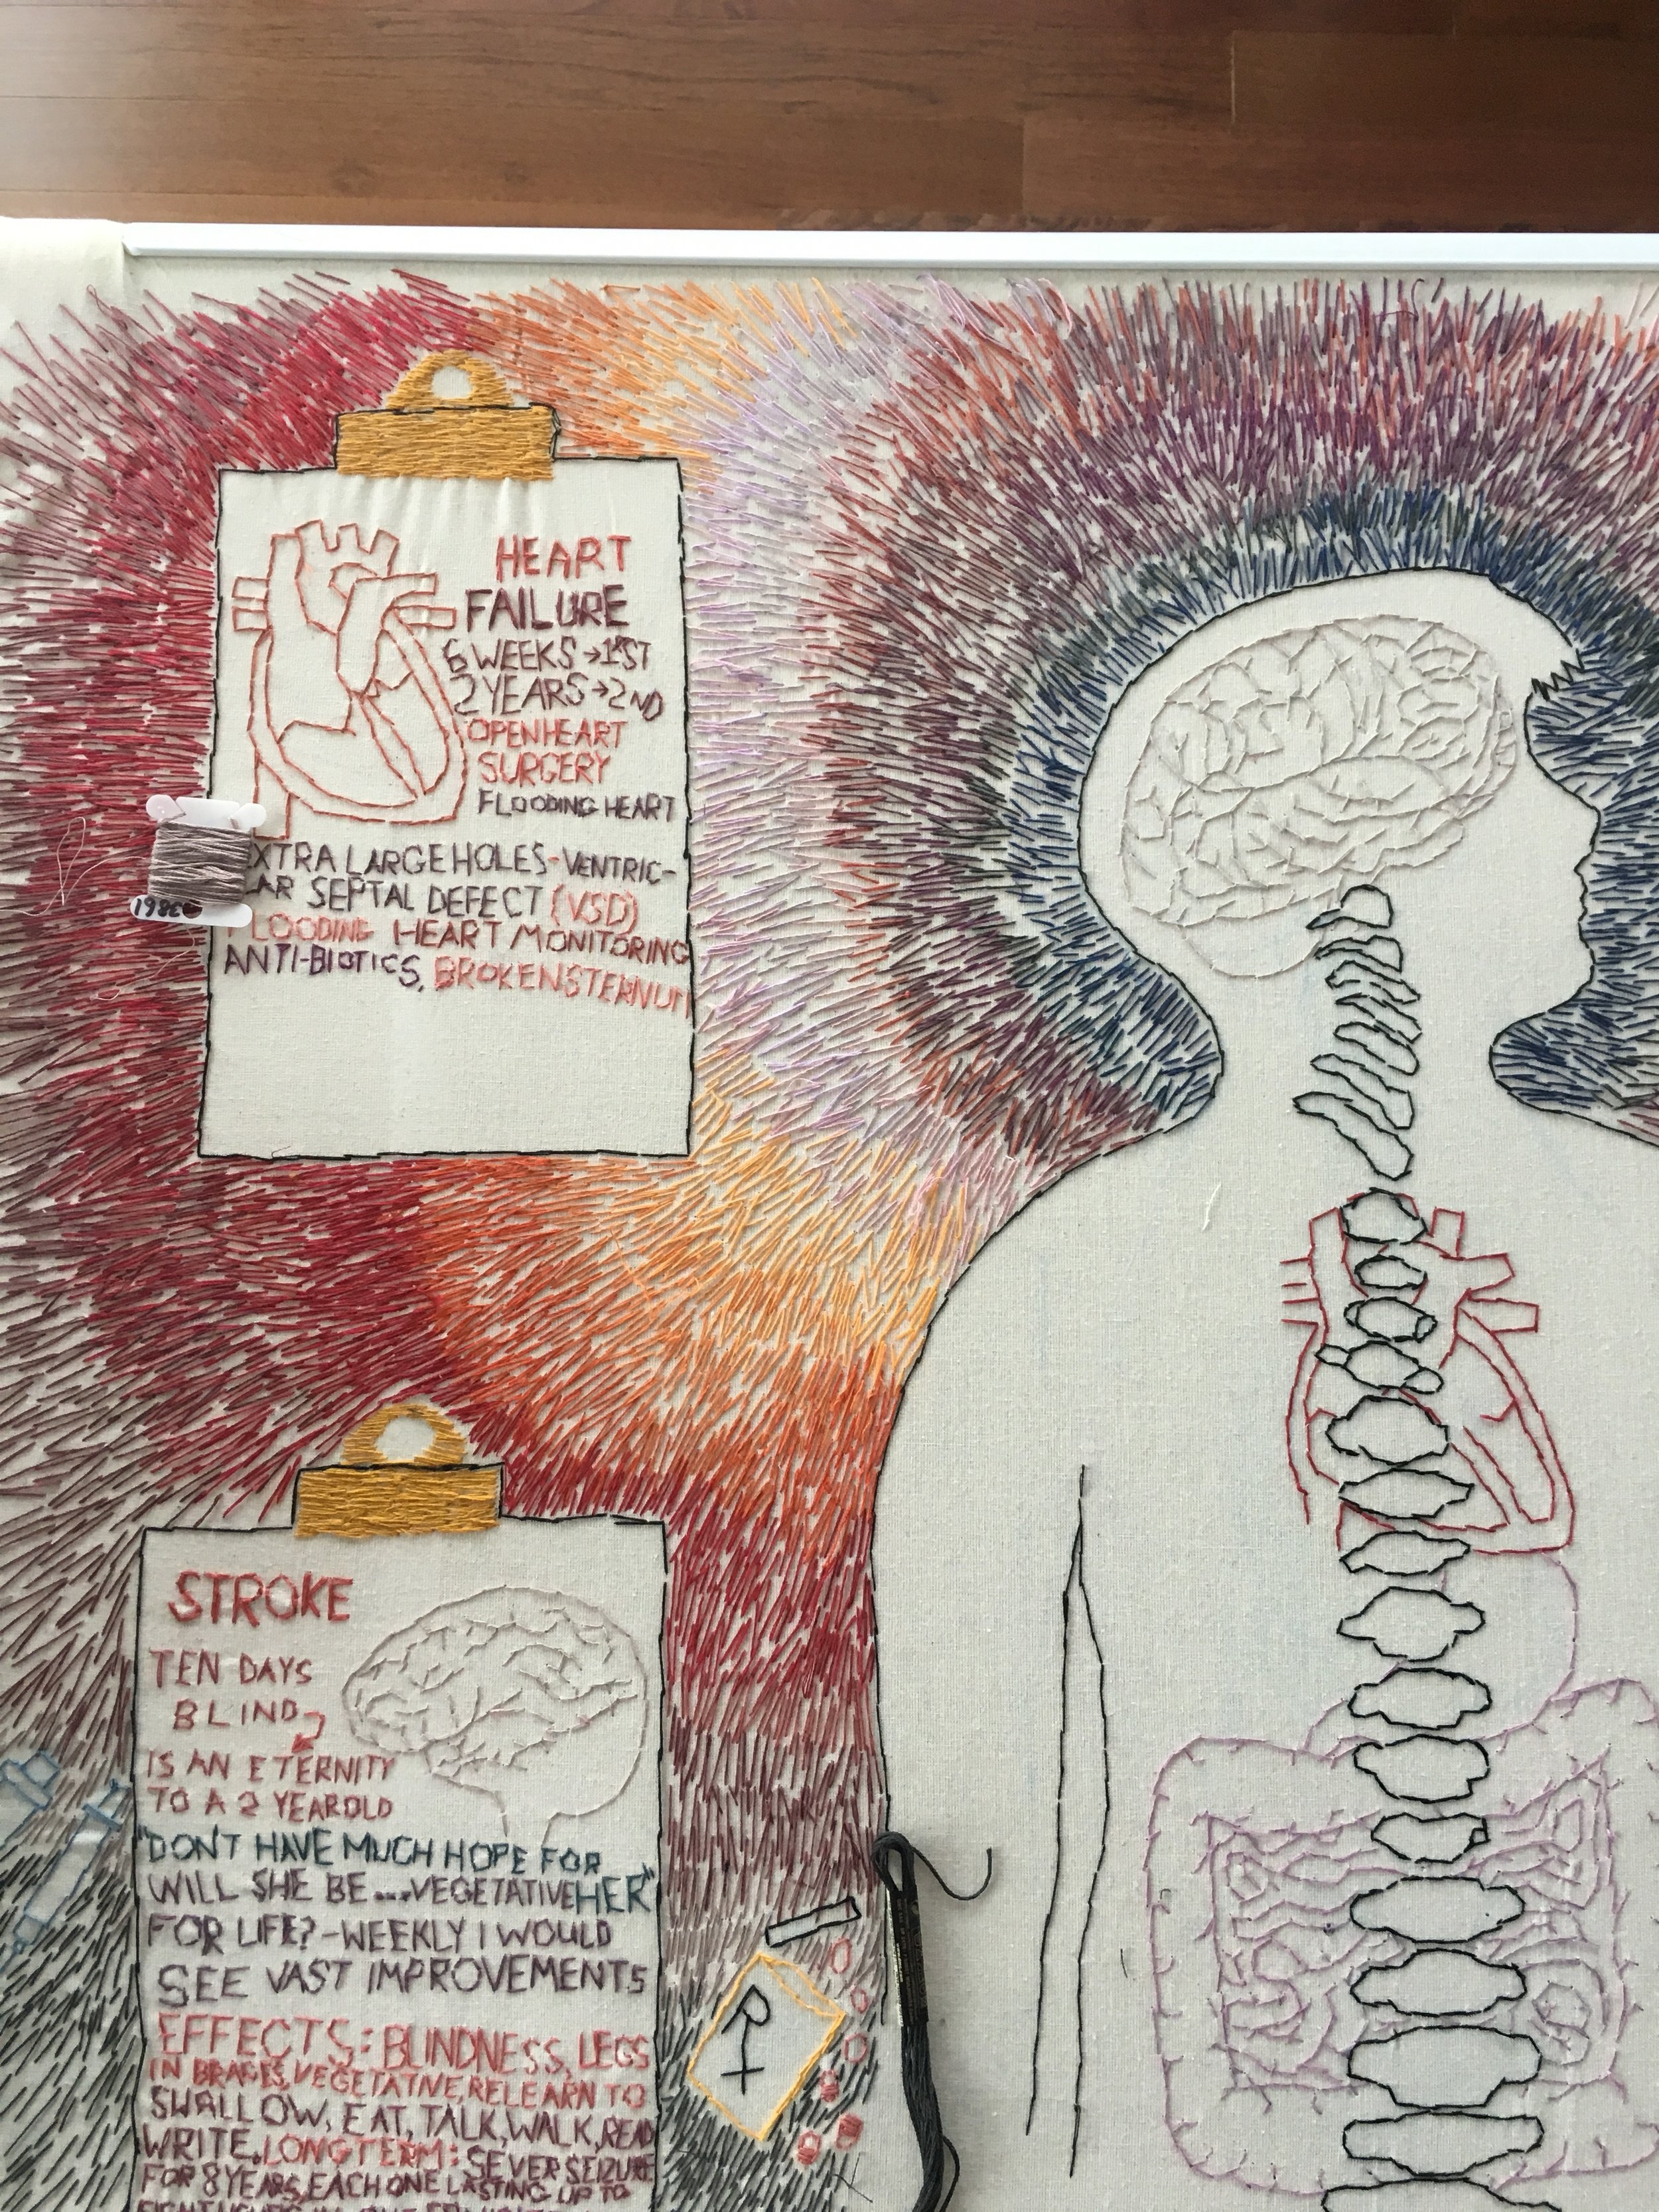 HEART
FAILURE
6 WEEKS → 1ST
2 YEARS → 2ND
OPEN HEART
SURGERY
FLOODING HEART
XTRA LARGE HOLES-VENTRIC-
AR SEPTAL DEFECT (VSD)
LOODING HEART MONITORING
ANTI-BIOTICS, BROKEN STERNUM
3861
STROKE
TEN DAYS
BLIND
IS AN ETERNITY
TO A 2 YEAR OLD
"DON'T HAVE MUCH HOPE FOR
WILL SHE BE...VEGETATIVE HER"
FOR LIFE?-WEEKLY I WOULD
SEE VAST IMPROVEMENTS
EFFECTS: BLINDNESS, LEGS
IN BRACES, VEGETATIVE, RELEARN TO
SWALLOW, EAT, TALK, WALK, READ
WRITE. LONG TERM: SEVER SEIZURE
FOR 8 YEARS, EACH ONE LASTING UP TO
R